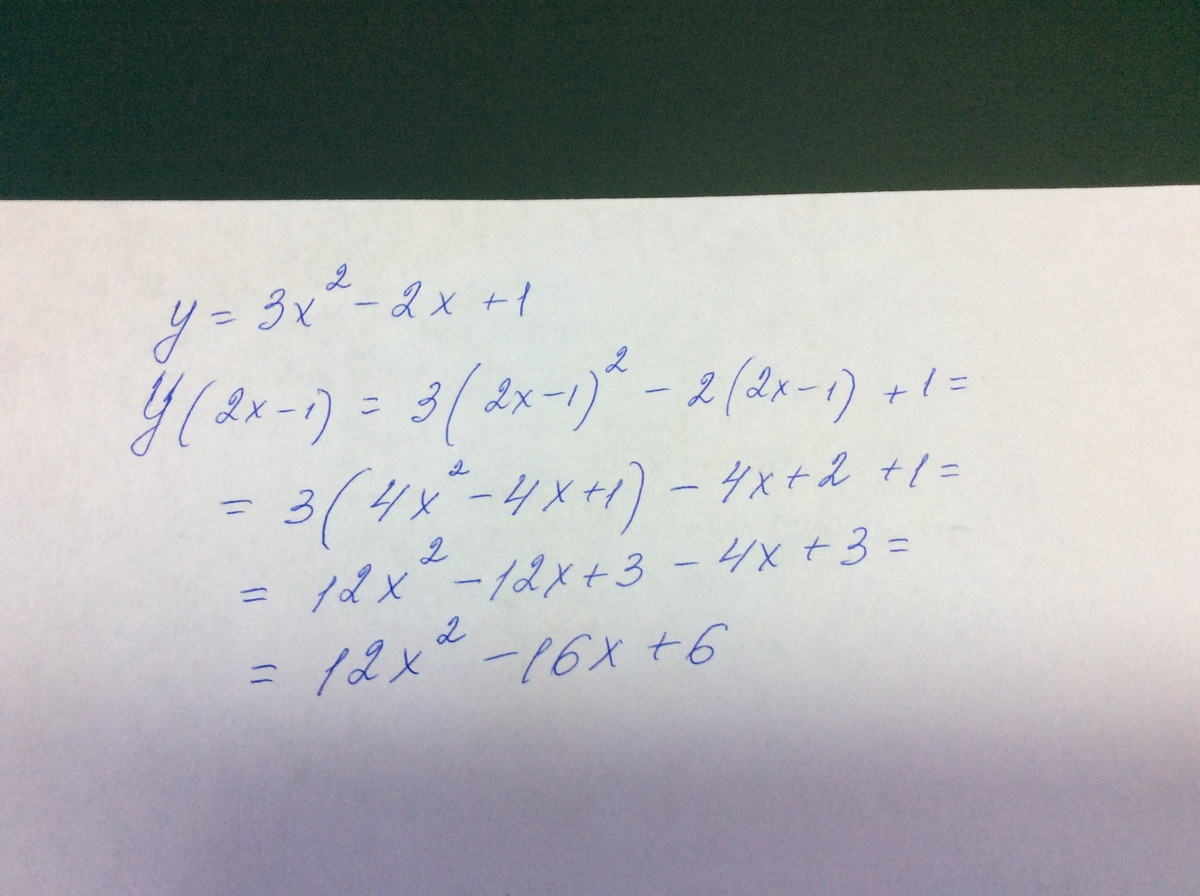 y = 3x² - 2x + 1
y(2x-1) = 3(2x-1)² - 2(2x-1) + 1 =
= 3(4x² - 4x + 1) - 4x + 2 + 1 =
= 12x² - 12x + 3 - 4x + 3 =
= 12x² - 16x + 6